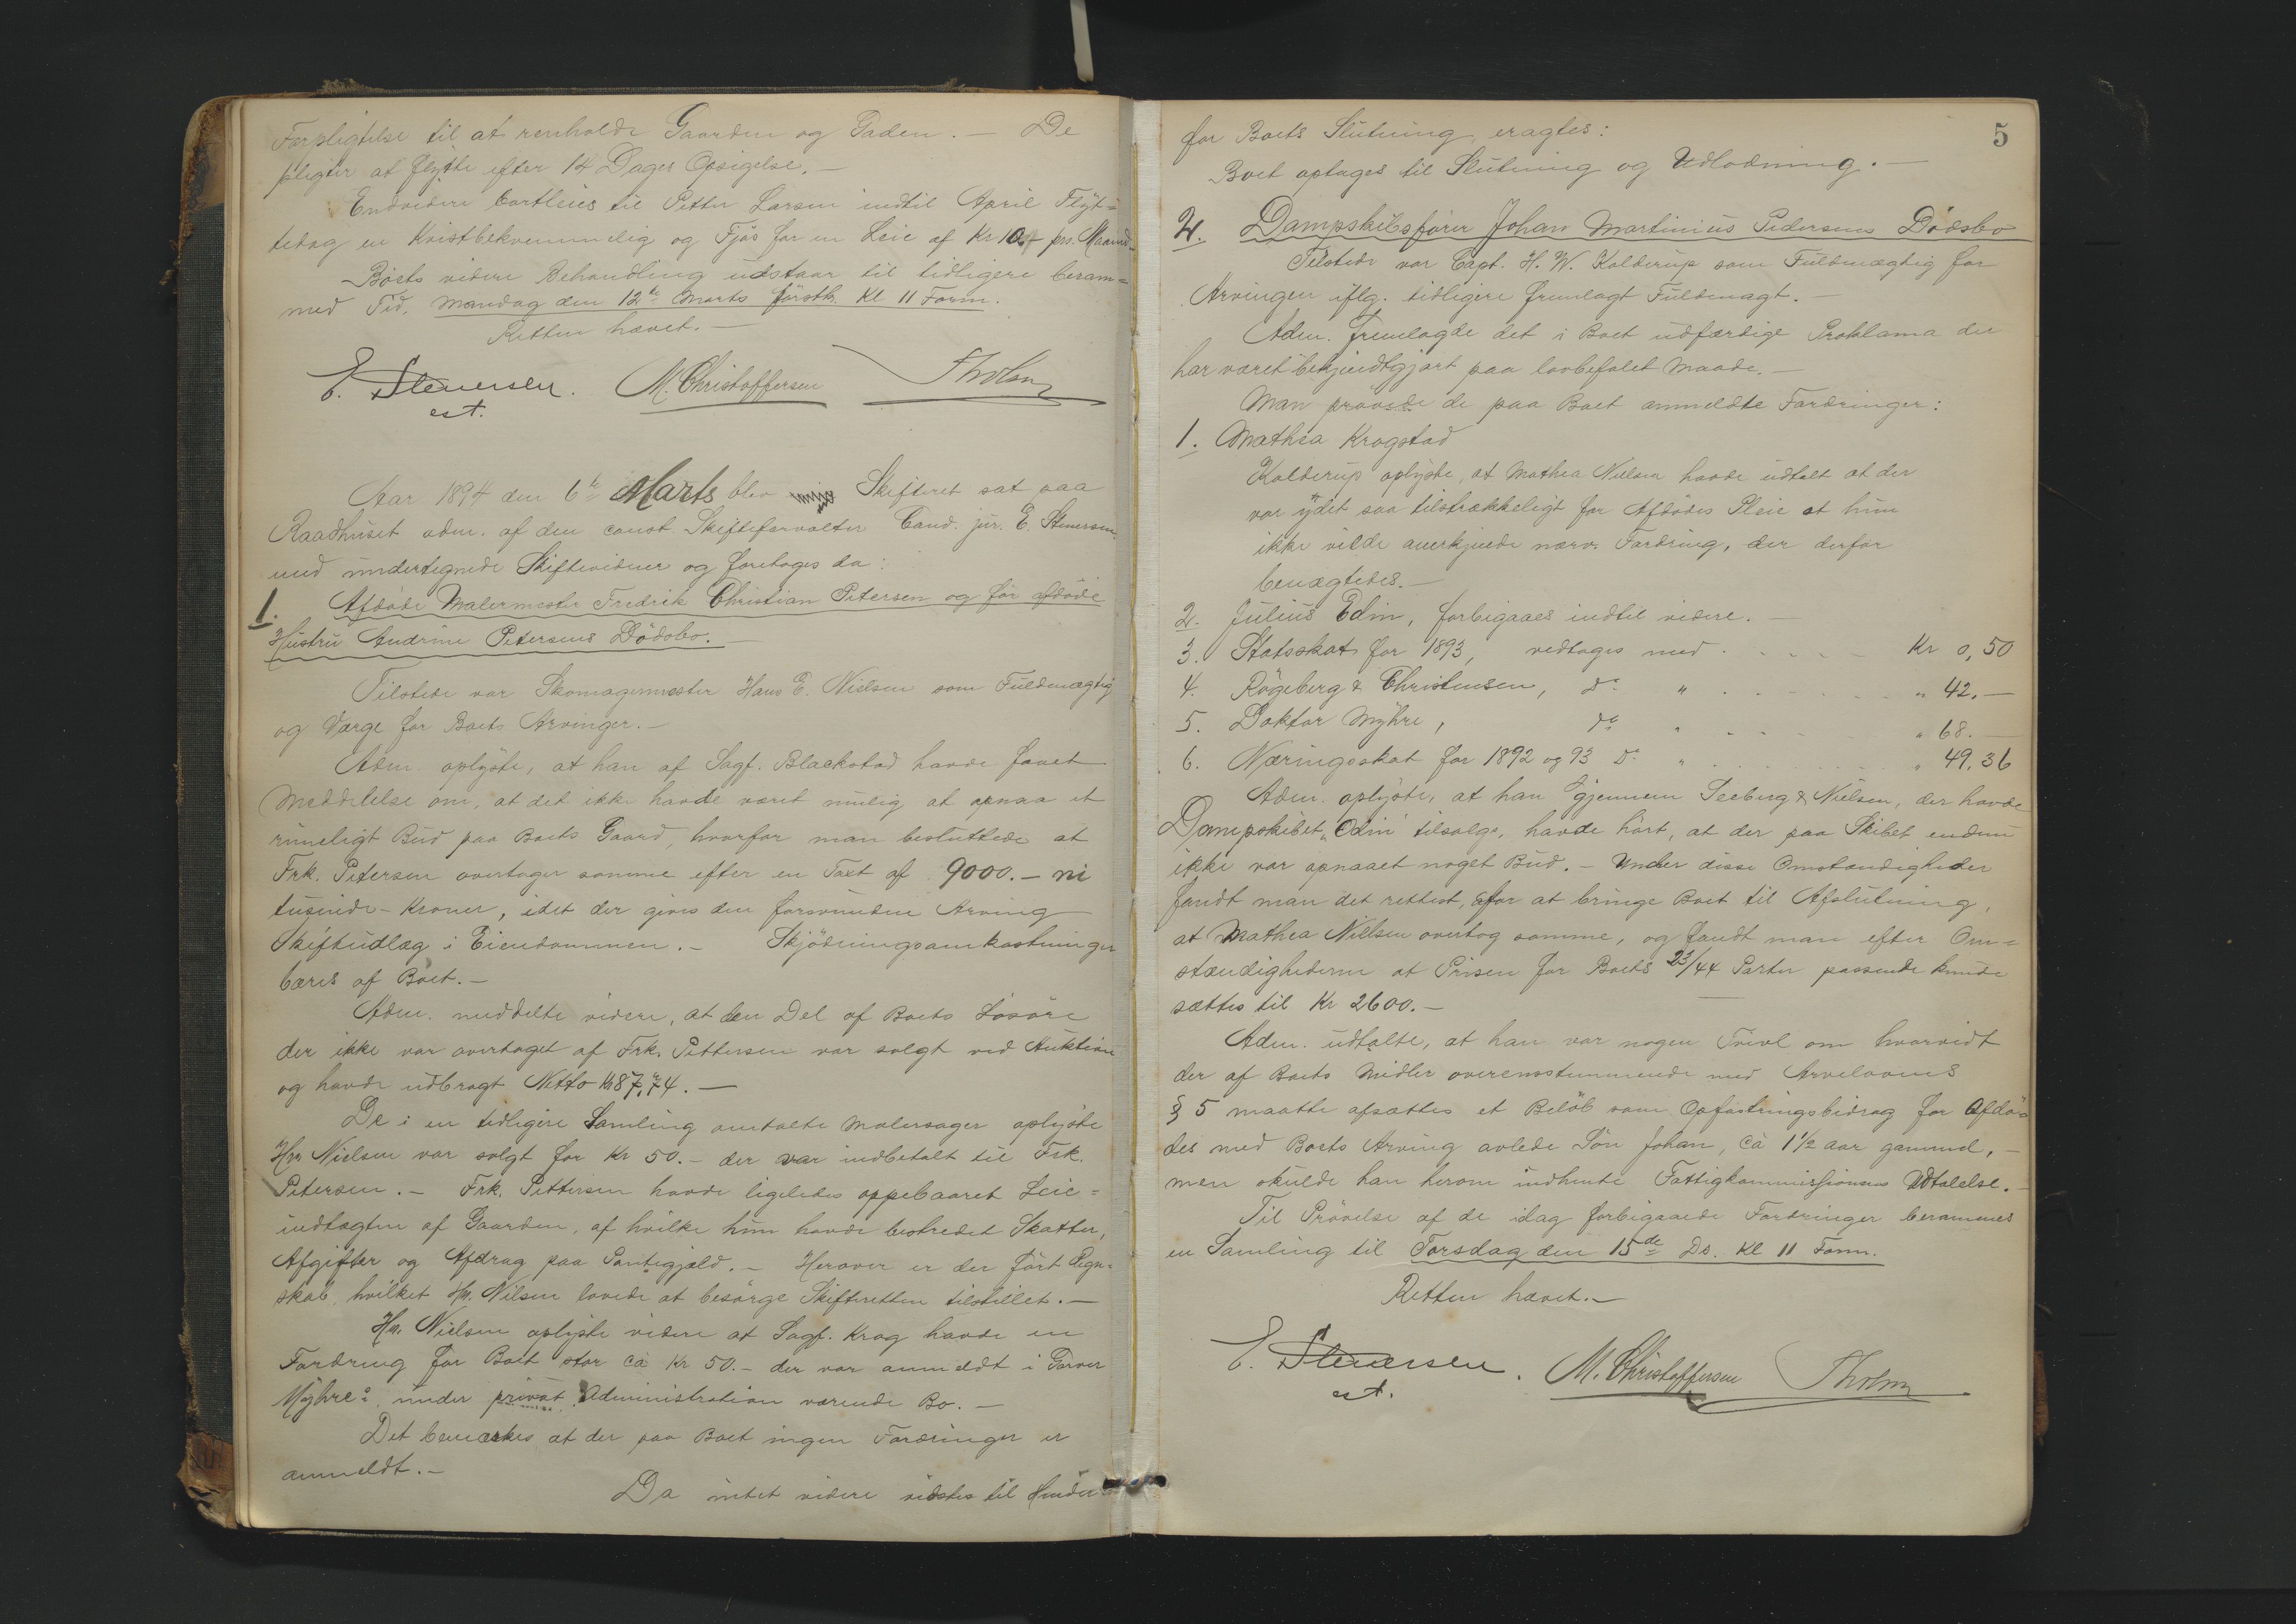 Forpligtelse til at renholde Gaarden og Gaden. — De
pligter at flytte efter 14 Dages Opsigelse. —
Endvidere bortleies til Petter Larsen indtil April Flyt=
tedag en Kvistbekvemmelig og Fjøs for en Leie af Kr 10.- pr. Maaned
Boets videre Behandling udstaar til tidligere beram=
med Tid. Mandag den 12te Marts førsth. Kl 11 Form.
Retten hævet. —
E. Stenersen. M. Christoffersen Tholm
cst.
Aar 1894 den 6te Marts blev Skifteret sat paa
Raadhuset adm. af den const. Skifteforvalter Cand. jur. E. Stenersen
med undertegnede Skiftevidner og foretoges da:
1. Afdøde Malermester Fredrik Christian Petersen og før afdøde
Hustru Andrine Petersens Dødsbo. —
Tilstede var Skomagermester Hans E. Nielsen som Fuldmægtig
og Værge for Boets Arvinger. —
Adm. oplyste, at han af Sagf. Blackstad havde faaet
Meddelelse om, at det ikke havde været mulig at opnaa et
rimeligt Bud paa Boets Gaard, hvorfor man besluttede at
Frk. Petersen overtager samme efter en Taxt af 9000.— ni
tusinde - Kroner, idet der gives den forsvundne Arving
Skifteudlæg i Eiendommen. — Skjødningsomkostninger
bæres af Boet. —
Adm. meddelte videre, at den Del af Boets Løsøre
der ikke var overtaget af Frk. Pettersen var solgt ved Auktion
og havde udbragt Netto Kr 87,74. —
De i en tidligere Samling omtalte Malersager oplyste
Hr. Nielsen var solgt for Kr 50.— der var indbetalt til Frk.
Petersen. — Frk. Pettersen havde ligeledes oppebaaret Leie=
indtægten af Gaarden, af hvilke hun havde bestredet Skatter,
Afgifter og Afdrag paa Pantegjæld. — Herover er der ført Regn=
skab, hvilket Hr. Nilsen lovede at besørge Skifteretten tilstillet. —
Hr. Nielsen oplyste videre at Sagf. Krag havde en
Fordring for Boet stor ca Kr 50.— der var anmeldt i Garver
Myhres under privat Administration værende Bo. —
Det bemærkes at der paa Boet ingen Fordringer er
anmeldt. —
Da intet videre vidstes til Hinder
5
for Boets Slutning eragtes:
Boet optages til Slutning og Udlodning. —
2. Dampskibsfører Johan Martinius Pedersens Dødsbo
Tilstede var Capt. H. W. Kolderup som Fuldmægtig for
Arvingen iflg. tidligere fremlagt Fuldmagt. —
Adm. fremlagde det i Boet udfærdige Proklama der
har været bekjendtgjort paa lovbefalet Maade. —
Man prøvede de paa Boet anmeldte Fordringer:
1. Mathea Krogstad
Kolderup oplyste, at Mathea Nielsen havde udtalt at der
var ydet saa tilstrækkeligt for Afdødes Pleie at hun
ikke vilde anerkjende nærv. Fordring, der derfor
benægtedes. —
2. Julius Edin, forbigaaes indtil videre. —
3. Statsskat for 1893, vedtages med Kr 0,50
4. Røgeberg & Christensen, Do " " 42.—
5. Doktor Myhre, do " " 68.—
6. Næringsskat for 1892 og 93 Do " " 49,36
Adm. oplyste, at han gjennem Seeberg & Nielsen, der havde
Dampskibet "Odin" tilsalgs, havde hørt, at der paa Skibet endnu
ikke var opnaaet noget Bud. — Under disse Omstændigheder
fandt man det rettest, for at bringe Boet til Afslutning,
at Mathea Nielsen overtog samme, og fandt man efter Om=
stændighederne at Prisen for Boets 23/44 Parter passende kunde
sættes til Kr 2600.—
Adm. udtalte, at han var nogen Tvivl om hvorvidt
der af Boets Midler overensstemmende med Arvelovens
§ 5 maatte afsættes et Beløb som Opfostringsbidrag for Afdø=
des med Boets Arving avlede Søn Johan, ca 1½ aar gammel, —
men skulde han herom indhente Fattigkommissionens Udtalelse. —
Til Prøvelse af de idag forbigaaede Fordringer berammes
en Samling til Torsdag den 15de Ds. Kl 11 Form.
Retten hævet. —
E. Stenersen. M. Christoffersen Tholm
cst.